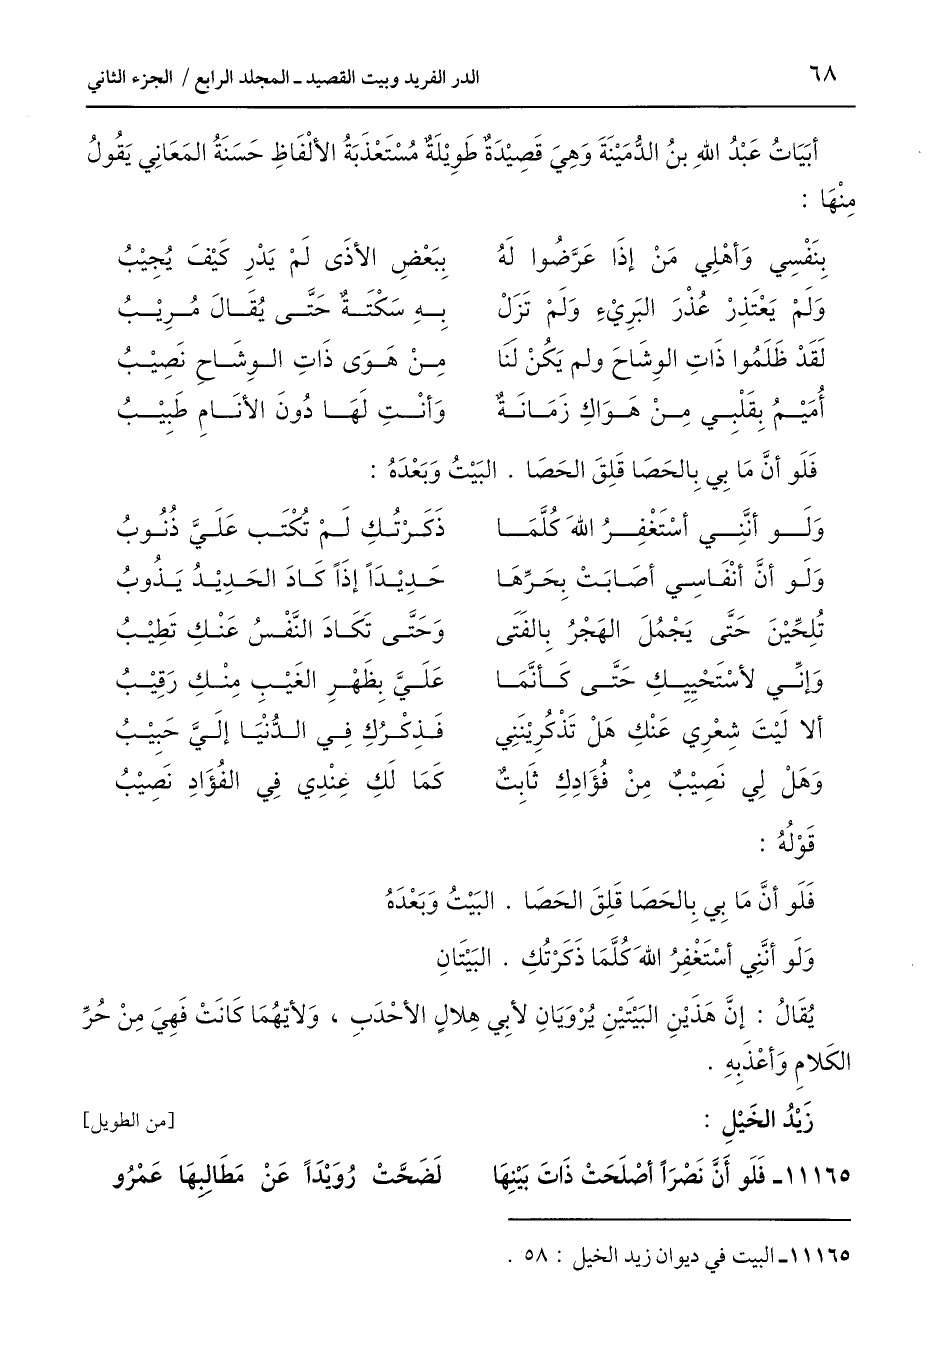 ٦٨ الدر الفريد وبيت القصيد ـ المجلد الرابع / الجزء الثاني
أبَيَاتُ عَبْدُ اللهِ بنُ الدُّمَيْنَةَ وَهِيَ قَصِيْدَةٌ طَوِيْلَةٌ مُسْتَعْذَبَةُ الألْفَاظِ حَسَنَةُ المَعَانِي يَقُولُ
مِنْهَا :
بِنَفْسِي وَأهْلِي مَنْ إذَا عَرَّضُوا لَهُ بِبَعْضِ الأذَى لَمْ يَدْرِ كَيْفَ يُجِيْبُ
وَلَمْ يَعْتَذِرْ عُذْرَ البَرِيْءِ وَلَمْ تَزَلْ بِهِ سَكْتَةٌ حَتَّى يُقَالَ مُرِيْبُ
لَقَدْ ظَلَمُوا ذَاتِ الوِشَاحَ ولم يَكُنْ لَنَا مِنْ هَوَى ذَاتِ الوِشَاحِ نَصِيْبُ
أُمَيْمُ بِقَلْبِي مِنْ هَوَاكِ زَمَانَةٌ وَأنْتِ لَهَا دُونَ الأنَامِ طَبِيْبُ
فَلَو أنَّ مَا بِي بِالحَصَا قَلِقَ الحَصَا . البَيْتُ وَبَعْدَهُ :
وَلَو أنَّنِي أسْتَغْفِرُ اللهَ كُلَّمَا ذَكَرْتُكِ لَمْ تُكْتَب عَلَيَّ ذُنُوبُ
وَلَو أنَّ أنْفَاسِي أصَابَتْ بِحَرِّهَا حَدِيْدَاً إذَاً كَادَ الحَدِيْدُ يَذُوبُ
تُلِحِّيْنَ حَتَّى يَجْمُلَ الهَجْرُ بِالفَتَى وَحَتَّى تَكَادَ النَّفْسُ عَنْكِ تَطِيْبُ
وَإنِّي لأسْتَحْيِيكِ حَتَّى كَأنَّمَا عَلَيَّ بِظَهْرِ الغَيْبِ مِنْكِ رَقِيْبُ
ألا لَيْتَ شِعْرِي عَنْكِ هَلْ تَذْكُرِيْنَنِي فَذِكْرُكِ فِي الدُّنْيَا إلَيَّ حَبِيْبُ
وَهَلْ لِي نَصِيْبٌ مِنْ فُؤَادِكِ ثَابِتٌ كَمَا لَكِ عِنْدِي فِي الفُؤَادِ نَصِيْبُ
قَوْلُهُ :
فَلَو أنَّ مَا بِي بِالحَصَا قَلِقَ الحَصَا . البَيْتُ وَبَعْدَهُ
وَلَو أنَّنِي أسْتَغْفِرُ اللهَ كُلَّمَا ذَكَرْتُكِ . البَيْتَانِ
يُقَالُ : إنَّ هَذَيْنِ البَيْتَيْنِ يُرْوَيَانِ لأبِي هِلالٍ الأحْدَبِ ، وَلأيّهُمَا كَانَتْ فَهِيَ مِنْ حُرِّ
الكَلامِ وَأعْذَبِهِ .
زَيْدُ الخَيْلِ : [من الطويل]
١١١٦٥ـ فَلَو أَنَّ نَصْرَاً أصْلَحَتْ ذَاتَ بَيْنِهَا لَضَحَّتْ رُوَيْدَاً عَنْ مَطَالِبِهَا عَمْرُو
١١١٦٥ـ البيت في ديوان زيد الخيل : ٥٨ .